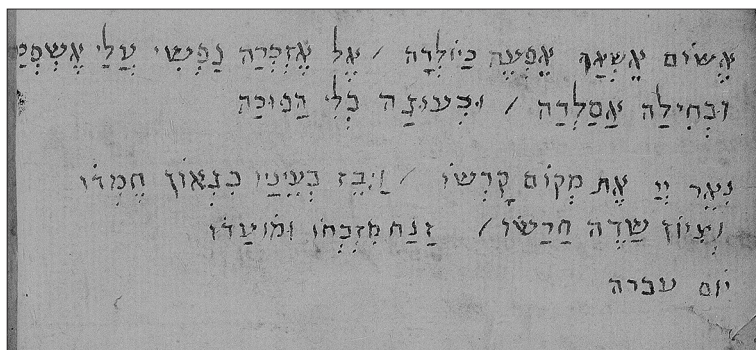 אֶשּׁוֹם אֶשְׁאַף אֶפְעֶה כַּיּוֹלֵדָה / אֵל אֶזְכְּרָה נַפְשִׁי עָלַי אֶשְׁפְּכָ
וּבְחִילָה אֲסַלְּדָה / וּבְעוּגָה בְּלִי הֲפוּכָה
נִאֵר יְיָ אֶת מְקוֹם קָדְשׁוֹ / וַיִּבֶז בְּעֵינָיו כִּנְאוֹץ חֶמְדּוֹ
וְצִיּוֹן שָׂדֶה חֲרָשׁוֹ / זָנַח מִזְבְּחוֹ וּמוֹעֲדוֹ
יוֹם עברה